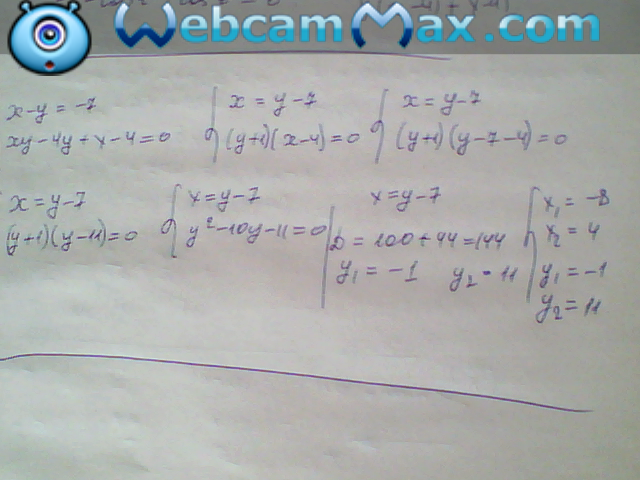 WebcamMax.com
x-y = -7
xy-4y+x-4=0
x = y-7
(y+1)(x-4)=0
x = y-7
(y+1)(y-7-4)=0
x=y-7
(y+1)(y-11)=0
x=y-7
y²-10y-11=0
x=y-7
D = 100+44=144
y₁ = -1 y₂ = 11
x₁ = -8
x₂ = 4
y₁ = -1
y₂ = 11